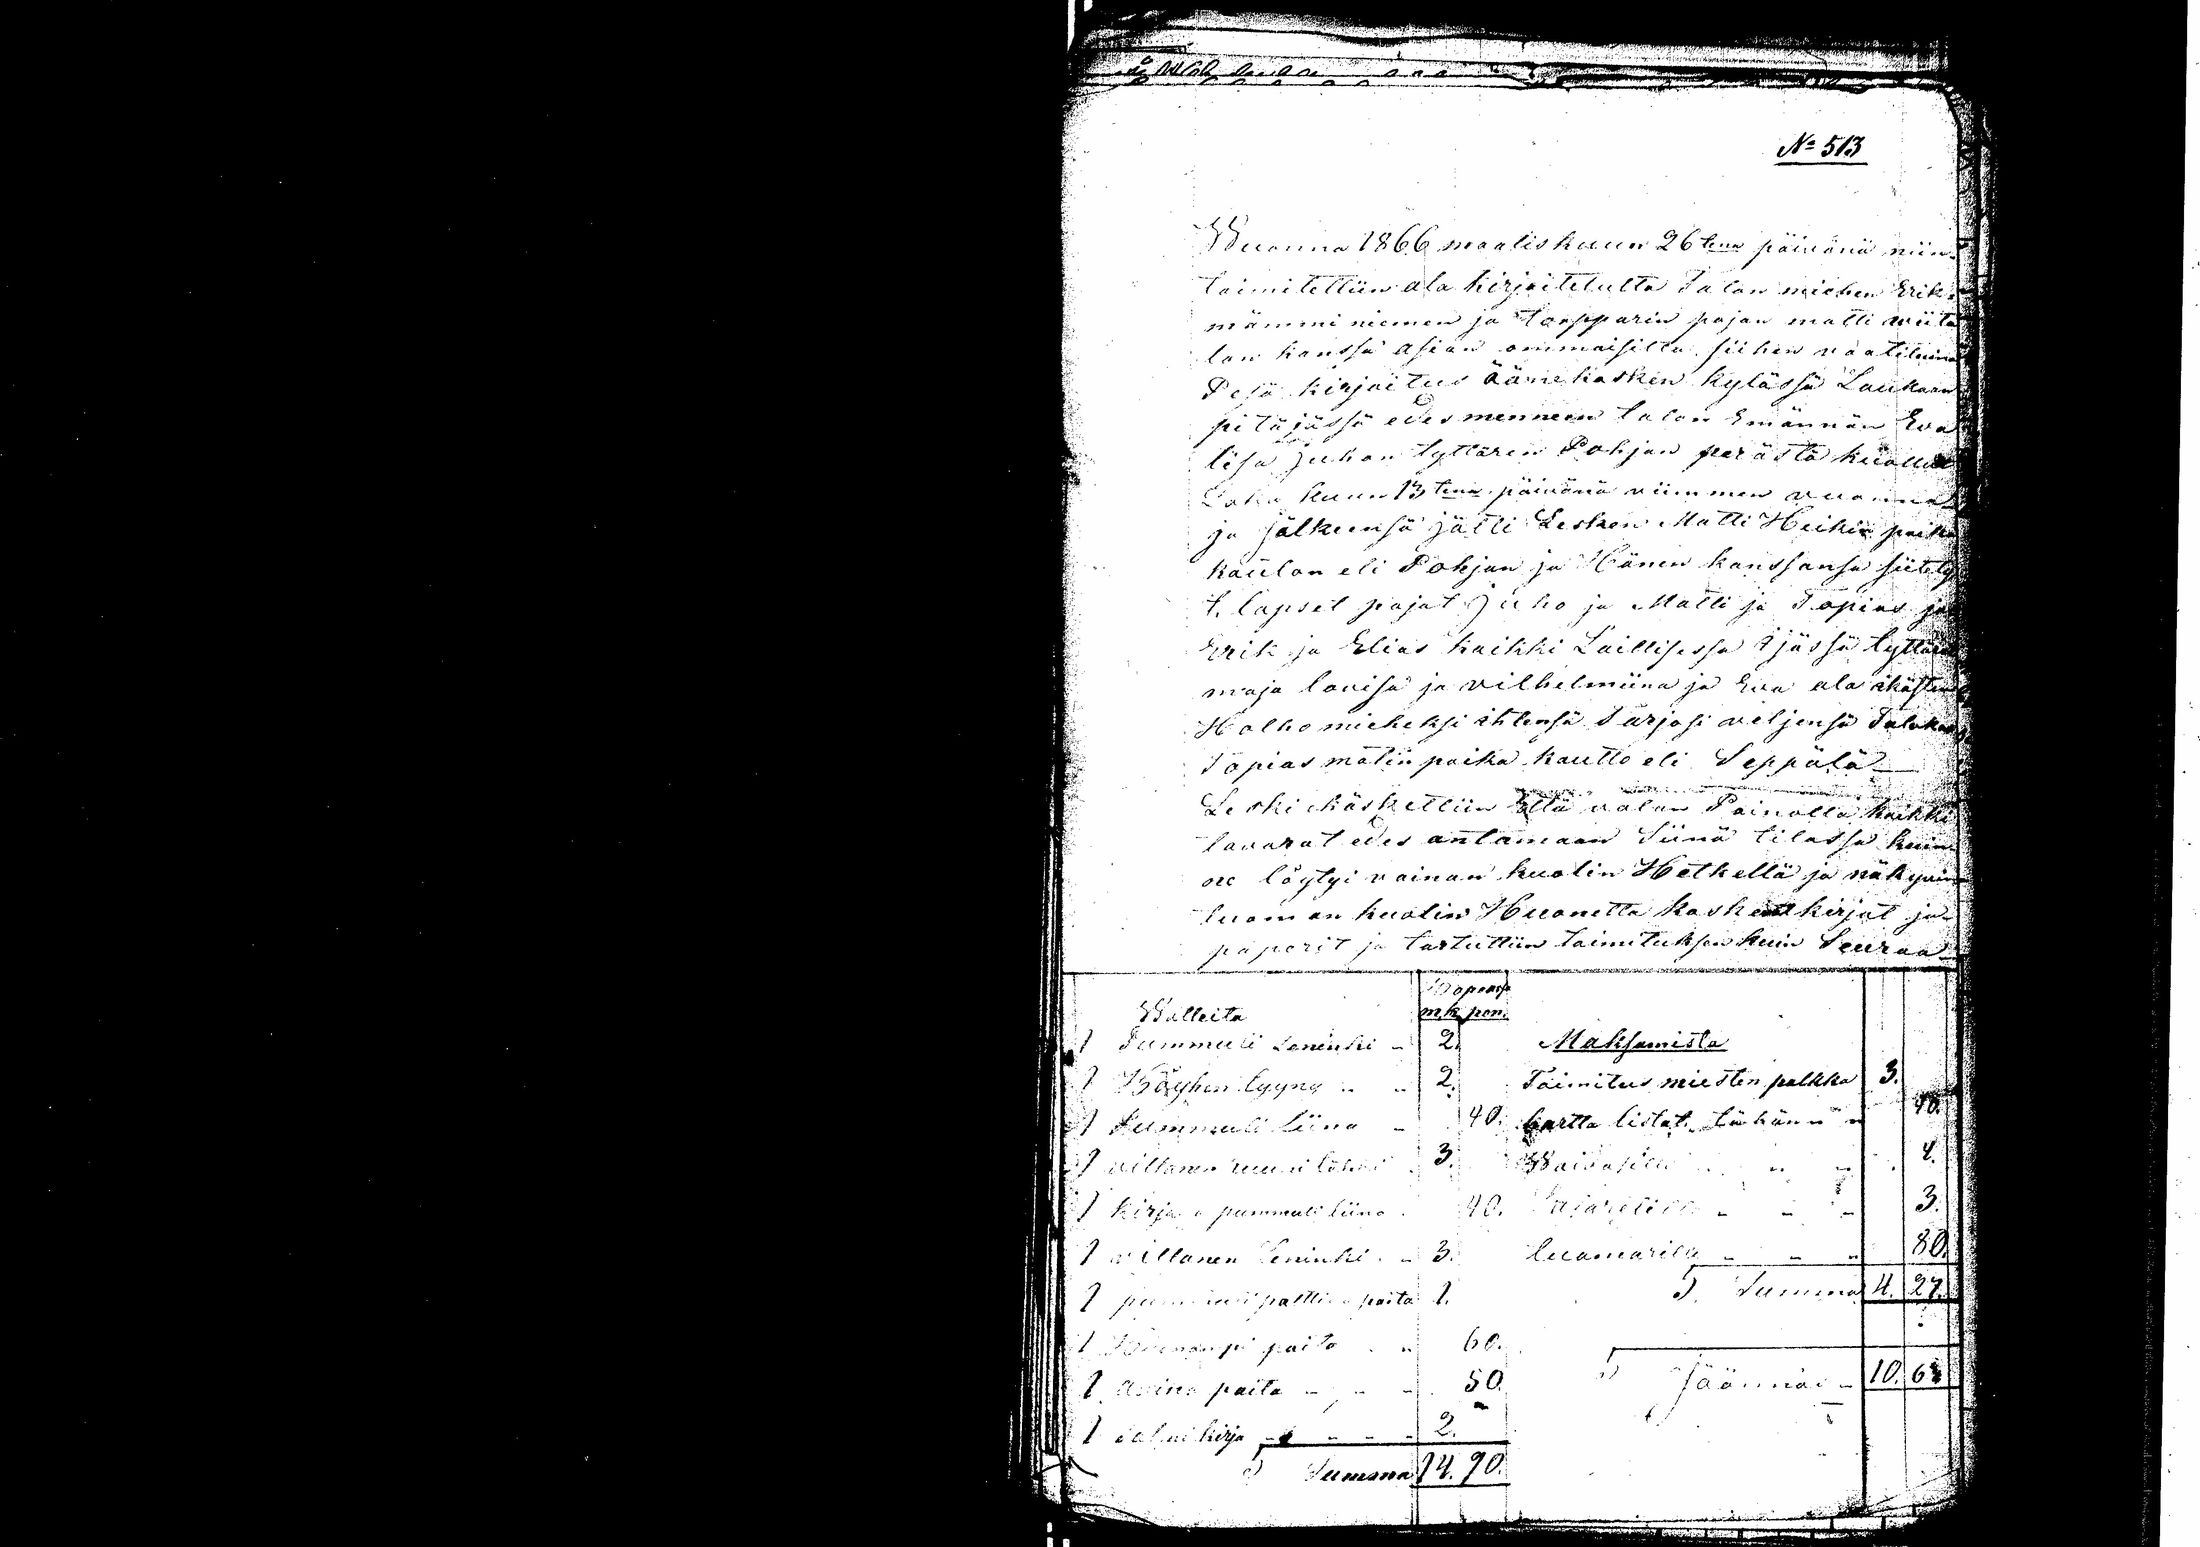 № 513
Wuonna 1866 maaliskuun 26tena päivänä niin
toimitettiin ala kirjoitetulta Talon miehen Erik
mämmi niemen ja torpparin pojan matti wiita
lan kanssa asian ommaisilta siihen vaatimina
Pesä kirjoitus äänekosken kylässä Laukaan
pitäjässä edes menneen talon Emännän Eva
lisa Juhon tyttären Pohjan perästä kuollut
Loka kuun 13tena päivänä viimmen vuonna
ja jälkeensä jätti Lesken Matti Heikin poika
kauton eli Pohjan ja Hänen kanssansa siitety
t. lapset pojat Juho ja Matti ja Topias ja
Erik ja Elias kaikki Laillisessa ijässä tyttäret
maja lovisa ja vilhelmiina ja Eva ala ikästen
Holho mieheksi ihtensä Tarjosi veljensä Talokas
Topias matin poika kautto eli Seppälä
Leski käskettiin Että valan Painolla kaikki
tavarat edes antamaan Siinä tilassa kuin
ne löytyi vainan kuolin Hetkellä ja näkyviin
tuoman kuolin Huonetta koskevat kirjat ja
paperit ja tartuttiin toimituksen kuin Seuraa
Hopeassa
Walleita mk pen.
1 Pummuli Leninki 2.
1 Köyhen tyyny 2.
1 Pummuli liina 40.
1 villanen 3.
1 kirjava pummuli liina 40.
1 villanen Leninki 3.
1 pummuli palttina paita 1.
1 Huonompi paita 60.
1 aivina paita 50.
1 Salmi kirja 2.
Summa 14. 90.
Maksamista
Toimitus miesten palkka 3.
kartta listat Tähän 40.
Waivasille 4.
3.
tuomarille 80.
Summa 4. 27.
Jäännös 10. 63